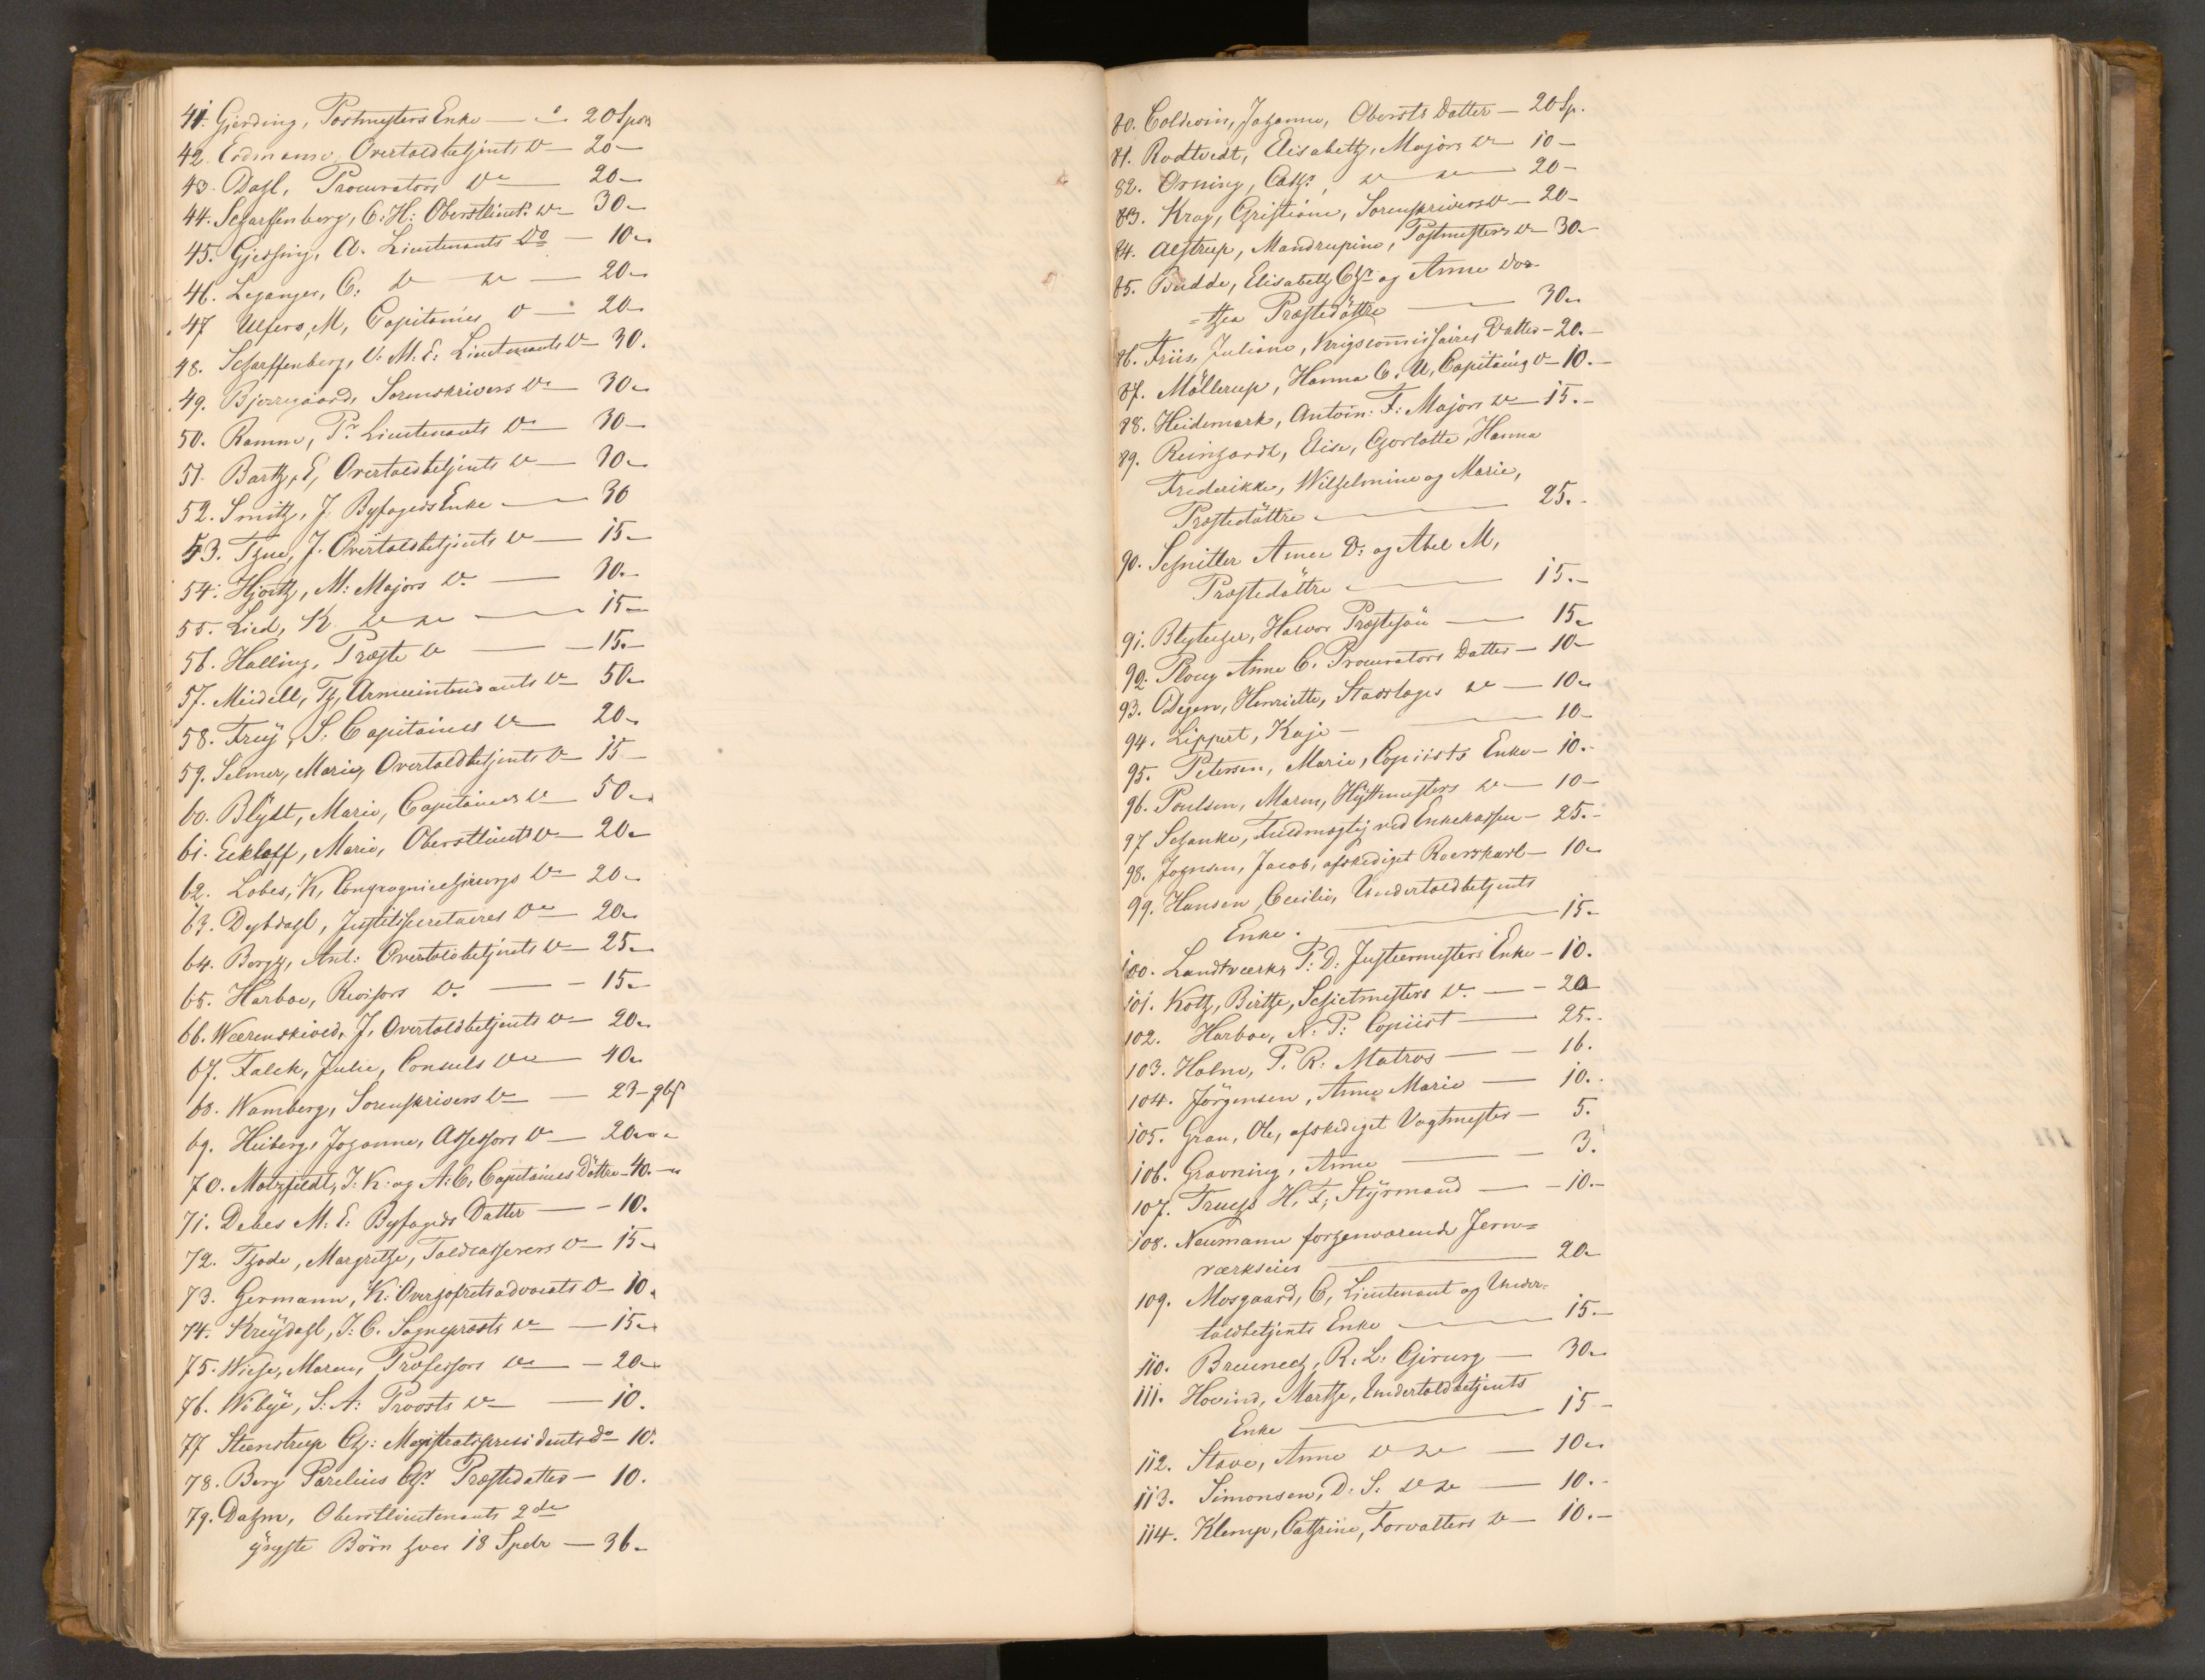 41. Gjerding, Postmesters Enke — 20 Spdr
42. Erdmann, Overtoldbetjents D — 20 —
43. Dahl, Procurators Do — 20 —
44. Scharffenberg, C. H: Oberstlieut: Do — 30 —
45. Gjessing, A. Lieutenants Do — 10 —
46. Leganger, C: Do Do — 20 —
47 Ulfers, M, Capitaines D — 20 —
48. Scharffenberg, U. M. E: Lieutenants D — 30.
49. Bjerregaard, Sorenskrivers Do — 30 —
50. Ramm, P. Lieutenants Do — 30 —
51. Barth, E, Overtoldbetjents Do — 30 —
52. Smith, J. Byfogeds Enke — 30
53. Thue, J. Overtoldbetjents Do — 15 —
54. Hjorth, M: Majors Do. — 30. —
55. Lied, K. Do Do — 15 —
56. Halling, Præste Do — 15. —
57. Meidell, Th, Armeeintendants Do — 50 —
58. Frey, S: Capitaines Do — 20 —
59. Selmer, Marie, Overtoldbetjents D — 15 —
60. Blÿdt, Marie, Capitaines Do — 50 —
61. Eckloff, Marie, Oberstlieuts Do — 20 —
62. Lobes, K, Compagniechirurgs Do — 20 —
63. Dybdahl, Justitssecretaires Do — 20 —
64. Borch, Ant: Overtoldbetjents Do — 25 —
65. Harboe, Revisors Do. — 15 —
66. Wærenskiold, J, Overtoldbetjents Do — 20 —
67. Falck, Julie, Consuls Do — 40 —
68. Wamberg, Sorenskrivers Do — 23 - 96 s
69. Heiberg, Johanne, Assessors D — 20 —
70. Motzfeldt, J: K: og A: C, Capitaines Döttre — 40. —
71. Debes M: E: Byfogeds Datter — 10.
72. Thode, Margrethe, Toldcasserers D — 15 —
73. Germann, K: Overhofretsadvocats D — 10.
74. Kreÿdahl, J: C. Sogneprests Do — 15 —
75. Wiese, Maren, Professors Do — 20 —
76. Wibÿe, S: A: Provsts Do — 10.
77 Steenstrup Ch: Magistratspresidents do 10.
78. Berg Parelius Chr. Præstedatter — 10.
79. Dahm, Oberstlieutenants 2de
ÿngste Börn hver 18 Spdr — 36 —
80. Coldevin, Johanne, Obersts Datter — 20 Sp.
81. Rodtvedt, Elisabeth, Majors Do — 10 —
82. Orning, Cath:, Do Do — 20 —
83. Krag, Christiane, Sorenskrivers D — 20 —
84. Alstrup, Mandrupine, Postmesters Do — 30 —
85. Budde, Elisabeth Chr. og Anne Dor-
= thea Præstedöttre — 30 —
86. Friis, Juliane, Krigscommissaires Datter — 20. —
87. Möllerup, Hanna C. U, Capitaines D — 10. —
88. Heidemark, Antoin: F: Majors Do — 15. —
89. Reinhardt, Elise, Charlotte, Hanna
Frederikke, Wilhelmine og Marie,
Præstedöttre — 25. —
90. Schnitler Anne D: og Abel M,
Præstedöttre — 15. —
91. Halvor Præstesön — 15 —
92. Ploug Anne C. Procurators Datter — 10 —
93. Degen, Henriette, Do — 10 —
94. Lippert, Kaja — 10 —
95. Petersen, Marie, Copiists Enke — 10. —
96. Poulsen, Maren, Hÿttemesters Do — 10 —
97 Schanke, Fuldmægtig ved Enkekassen — 25. —
98. Johnsen, Jacob, afskediget Roerskarl — 10 —
99. Hansen, Cecilie, Undertoldbetjents
Enke. — 15 —
100. Landtværk, P: D: Justeermesters Enke — 10.
101. Koth, Birthe, Do. — 20
102. Harboe, N: P: Copiist — 25. —
103. Holm, P. R: Matros — 16.
104. Jörgensen, Anne Marie — 10. —
105. Gran, Ole, afskediget Vagtmester — 5.
106. Gravning, Anne — 3.
107. Truels H. F, Stÿrmand — 10. —
108. Neumann forhenværende Jern=
værkseier — 20 —
109. Mosgaard, C, Lieutenant og Under-
toldbetjents Enke — 15. —
110. Breunech, R: L: Chirurg — 30 —
111. Hovind, Marthe, Undertoldbetjents
Enke — 15 —
112. Stave, Anne Do Do — 10 —
113. Simonsen, D: S: Do Do — 10. —
114. Klemp, Cathrine, Forvalters Do — 10. —